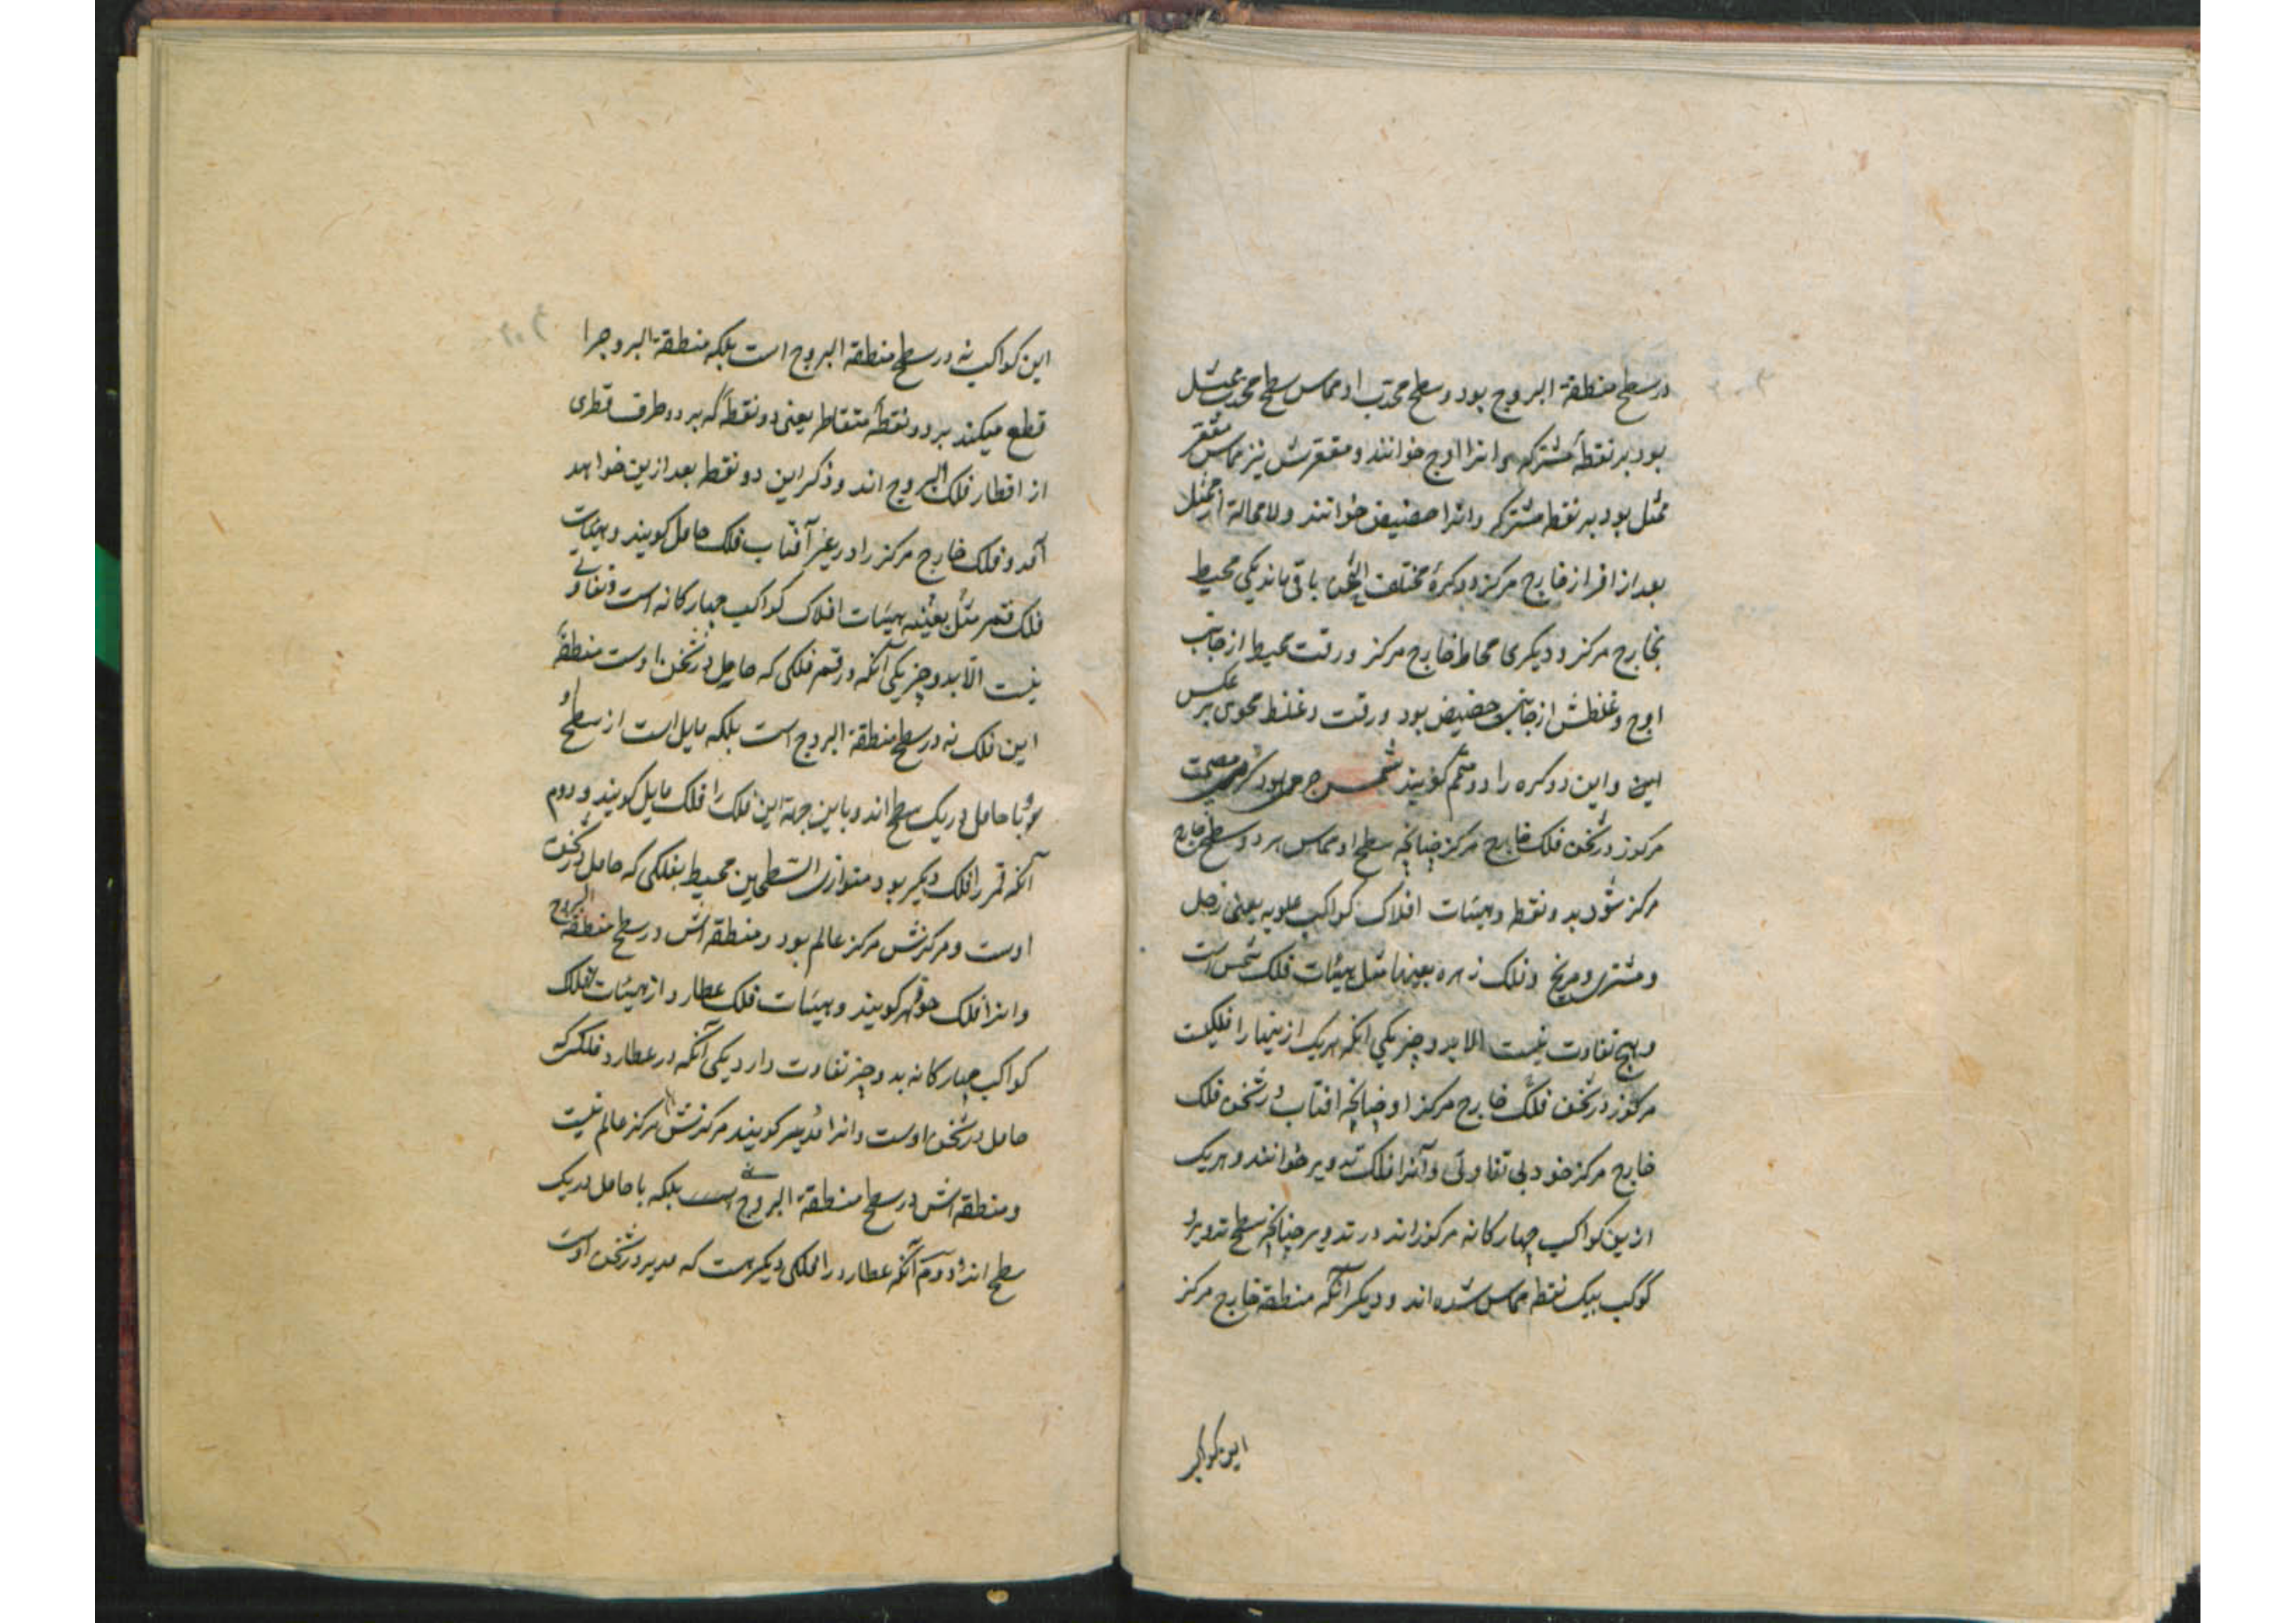 در سطح منطقة البروج بود و سطح محدب او مماس سطح محدب ممثل
بود بر نقطهٔ مشترکه و انرا اوج خوانند و مقعرش نیز مماس مقعر
ممثل بود بر نقطه مشترکه و انرا حضیض خوانند و لا محالة از ممثل
بعد از افراز خارج مرکز دو کرهٔ مختلف الثخن باقی ماند یکی محیط
بخارج مرکز و دیکری محاط خارج مرکز و رقت محیط از جانب
اوج و غلظش از جانب حضیض بود و رقت و غلظ محوی بر عکس
این و این دو کره را دو متمم کویند شمس جرمی بود کروی مصمت
مرکوز در ثخن فلک خارج مرکز چنانچه سطح او مماس هر دو سطح خارج
مرکز شود بدو نقط و هیئات افلاک کواکب علویه یعنی زحل
و مشتری و مریخ و فلک زهره بعینها مثل هیئات فلک شمس است
و هیچ تفاوت نیست الا بدو چیز یکی انکه هریک از ینها را فلکیست
مرکوز در ثخن فلک خارج مرکز او چنانچه افتاب در ثخن فلک
خارج مرکز خود بی تفاوتی و آنرا فلک تدویر خوانند و هریک
ازین کواکب چهارکانه مرکوزاند در تدویر چنانچه سطح تدویر و
کوکب بیک نقطه مماس شده اند و دیکر آنکه منطقة خارج مرکز
این کواکب
این کواکب نه در سطح منطقة البروج است بلکه منطقة البروجرا
قطع میکند بر دو نقطهٔ متقاطر یعنی دو نقطهٔ که بر دو طرف قطری
از اقطار فلک البروج اند و ذکر این دو نقط بعد ازین خواهد
آمد و فلک خارج مرکز را در غیر آفتاب فلک حامل کویند و هیئات
فلک قمر مثل بعینه هیئات افلاک کواکب چهارکانه است و تفاوتی
نیست الا بدو چیز یکی آنکه در قمر فلکی که حامل در ثخن اوست منطقهٔ
این فلک نه در سطح منطقة البروج است بلکه مایل است از سطح او
و با حامل در یک سطح اند و باین جهة این فلک را فلک مایل کویند و دوم
آنکه قمر را فلک دیکر بود متوازی السطحین محیط بفلکی که حامل در ثخن
اوست و مرکزش مرکز عالم بود و منطقه اش در سطح منطقة البروج
و انرا فلک جوزهر کویند و هیئات فلک عطارد از هیئات افلاک
کواکب چهارکانه بدو چیز تفاوت دارد یکی آنکه در عطارد فلکی که
حامل در ثخن اوست و انرا مدیر کویند مرکزش مرکز عالم نیست
و منطقه اش در سطح منطقة البروج نیست بلکه با حامل در یک
سطح اند و دوم آنکه عطارد را فلکی دیکر هست که مدیر در ثخن اوست